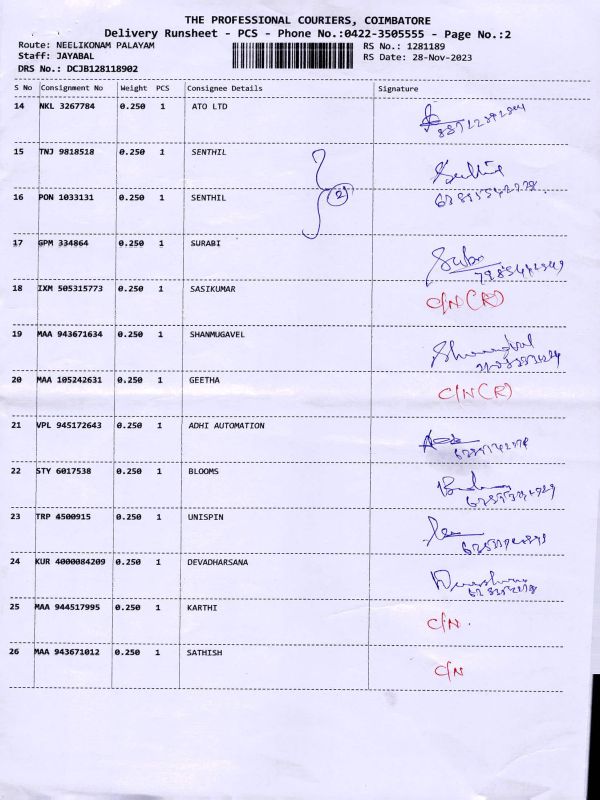 THE PROFESSIONAL COURIERS, COIMBATORE
Delivery Runsheet - PCS - Phone No.:0422-3505555 - Page No.:2
Route: NEELIKONAM PALAYAM RS No.: 1281189
Staff: JAYABAL RS Date: 28-Nov-2023
DRS No.: DCJB128118902
S No Consignment No Weight PCS Consignee Details Signature
14 NKL 3267784 0.250 1 ATO LTD
15 TNJ 9818518 0.250 1 SENTHIL
16 PON 1033131 0.250 1 SENTHIL (2)
17 GPM 334864 0.250 1 SURABI
18 IXM 505315773 0.250 1 SASIKUMAR C/N (R)
19 MAA 943671634 0.250 1 SHANMUGAVEL
20 MAA 105242631 0.250 1 GEETHA C/N (R)
21 VPL 945172643 0.250 1 ADHI AUTOMATION
22 STY 6017538 0.250 1 BLOOMS
23 TRP 4500915 0.250 1 UNISPIN
24 KUR 4000084209 0.250 1 DEVADHARSANA
25 MAA 944517995 0.250 1 KARTHI C/N.
26 MAA 943671012 0.250 1 SATHISH C/N